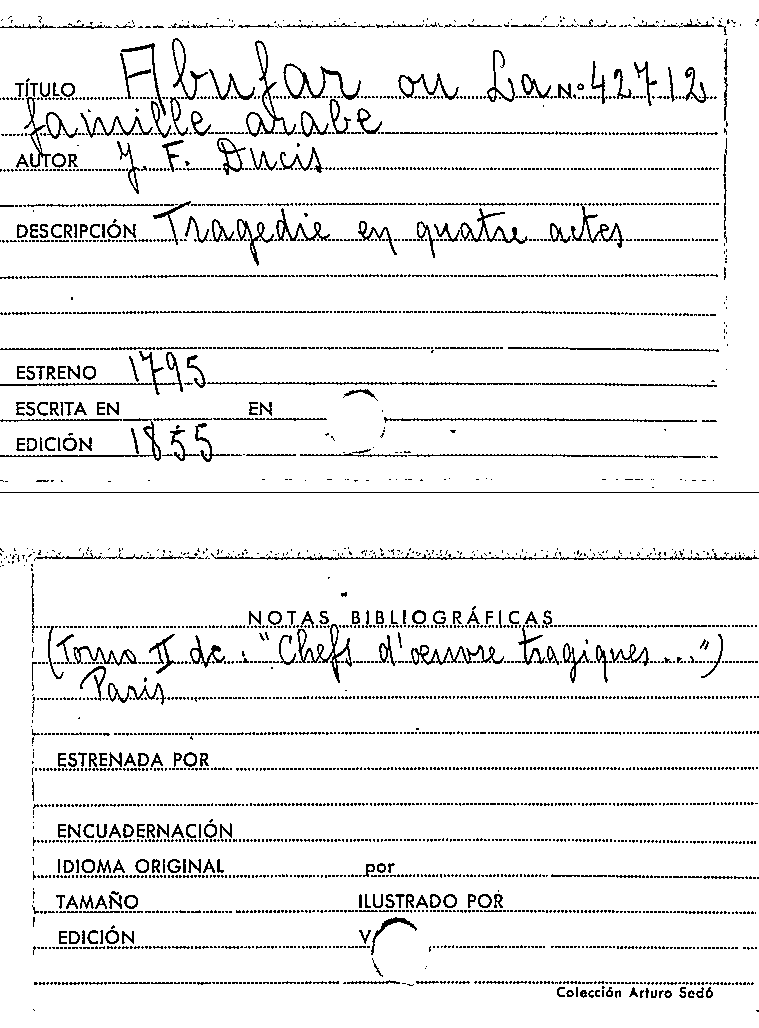 TÍTULO Abufar ou La Nº 42712
famille arabe
AUTOR J. F. Ducis
DESCRIPCIÓN Tragedie en quatre actes
ESTRENO 1795
ESCRITA EN EN
EDICIÓN 1855
NOTAS BIBLIOGRÁFICAS
(Tomo II de : "Chefs d'oeuvre tragiques...")
Paris
ESTRENADA POR
ENCUADERNACIÓN
IDIOMA ORIGINAL por
TAMAÑO ILUSTRADO POR
EDICIÓN V
Colección Arturo Sedó